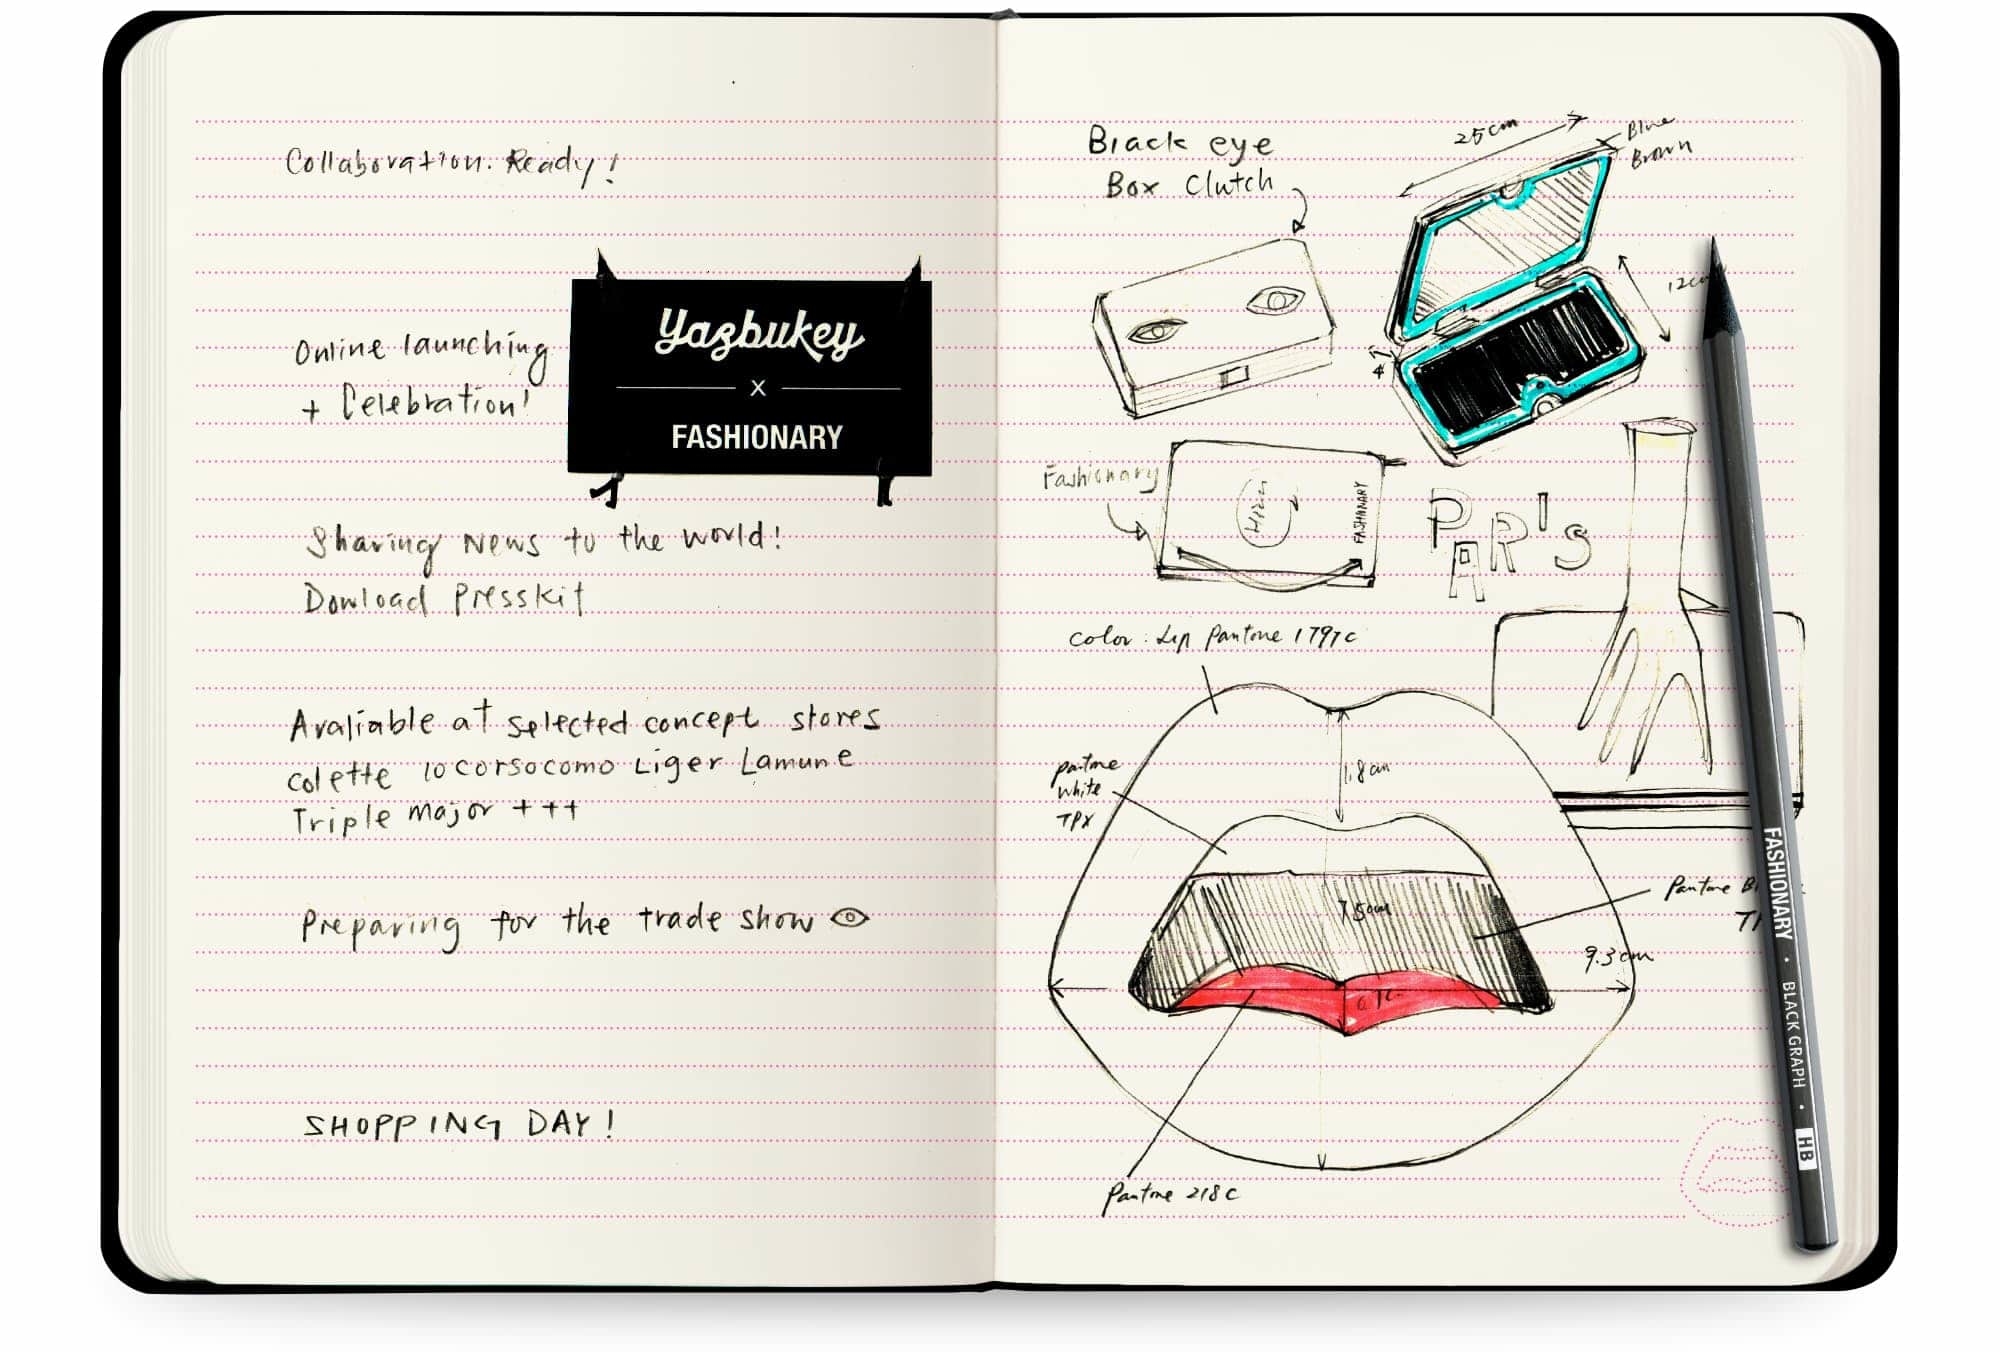 Collaboration. Ready!
Yazbukey
x
FASHIONARY
Online launching
+ Celebration!
Sharing News to the world!
Dowload Presskit
Avaliable at selected concept stores
Colette 10corsocomo Liger Lamune
Triple Major +++
Preparing for the trade show
SHOPPING DAY!
Black eye
Box Clutch
25cm
Blue
Brown
Fashionary
FASHIONARY
PARIS
color: Lip Pantone 1797C
1.8cm
pantone
white
TPX
7.5cm
Pantone
9.3cm
Pantone 218C
FASHIONARY • BLACK GRAPH • HB